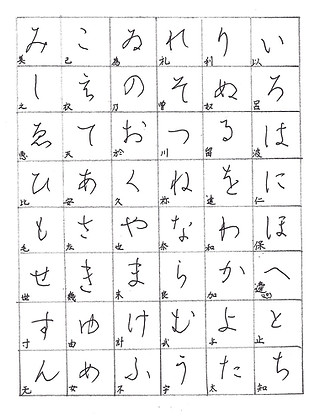 い以 ろ呂 は波 に仁 ほ保 へ邊 と止 ち知
り利 ぬ奴 る留 を遠 わ和 か加 よ与 た太
れ礼 そ曽 つ川 ね祢 な奈 ら良 む武 う宇
ゐ為 の乃 お於 く久 や也 ま末 け計 ふ不
こ己 え衣 て天 あ安 さ左 き幾 ゆ由 め女
み美 し之 ゑ恵 ひ比 も毛 せ世 す寸 ん无